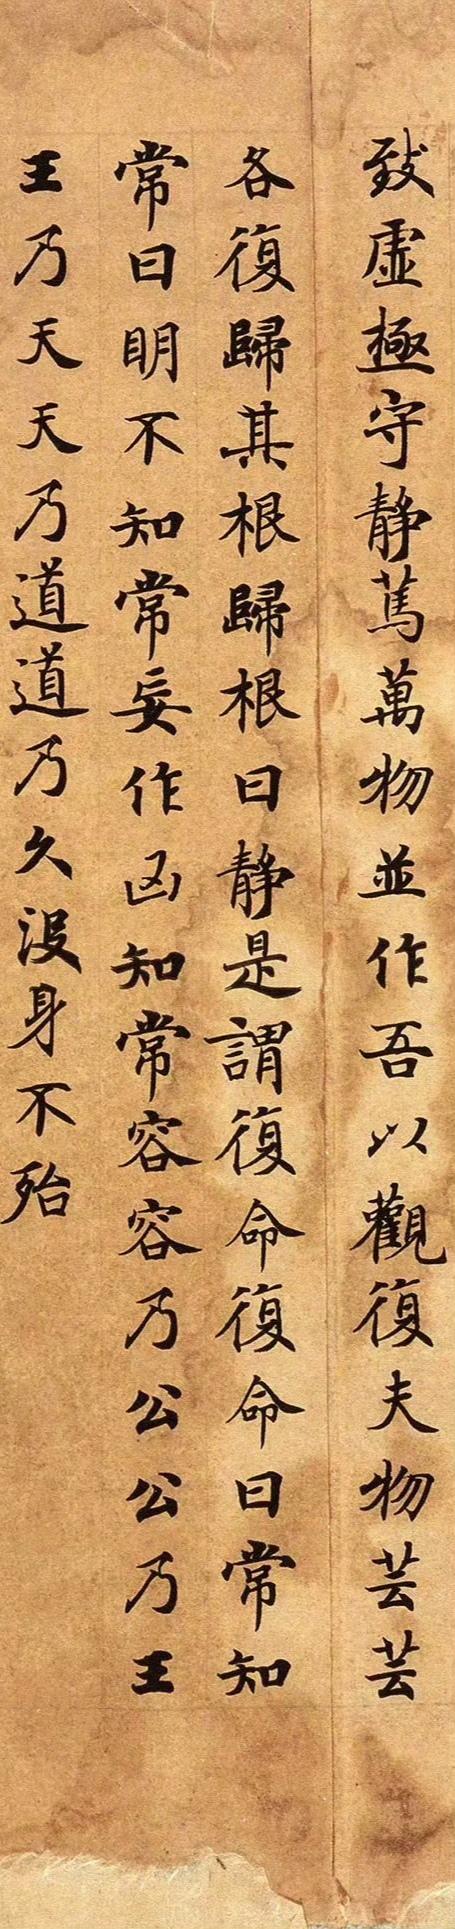 致虛極守靜篤萬物並作吾以觀復夫物芸芸
各復歸其根歸根曰靜是謂復命復命曰常知
常曰明不知常妄作凶知常容容乃公公乃王
王乃天天乃道道乃久沒身不殆